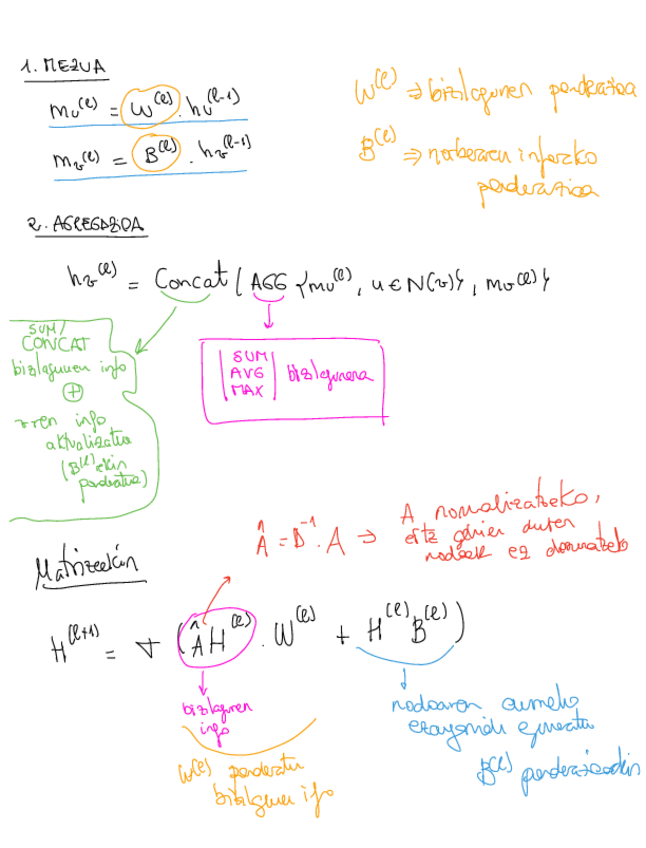 1. MEZUA
mu^(l) = W^(l) · hu^(l-1)
mv^(l) = B^(l) · hv^(l-1)
W^(l) ⇒ bizilagunen ponderazioa
B^(l) ⇒ norberaren infozko
ponderazioa
2. AGREGAZIOA
hv^(l) = Concat ( AGG { mu^(l), u ∈ N(v) }, mv^(l) }
SUM/
CONCAT
bizilagunen info
⊕
v-ren info
aktualizatua
(B^(l) ekin
ponderatua)
SUM
AVG
MAX
bizilagunena
Â = D^-1 · A →
A normalizatzeko,
duten
nodoek ez dominatzeko
Matrizeekin
H^(l+1) = σ (ÂH^(l) · W^(l) + H^(l) B^(l))
bizilagunen
info
W^(l) ponderatu
bizilagunen info
nodoaren aurreko
B^(l) ponderazioekin